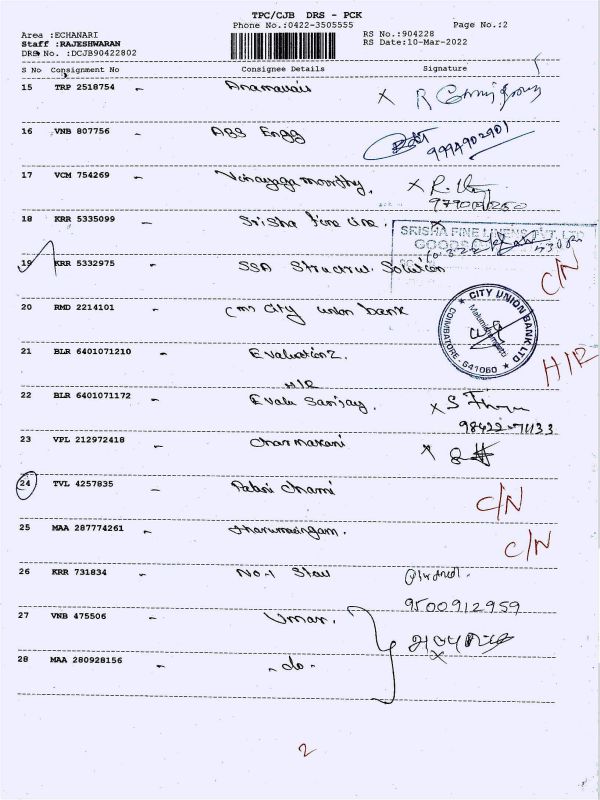 TPC/CJB DRS - PCK
Phone No.:0422-3505555 Page No.:2
Area :ECHANARI RS No.:904228
Staff :RAJESHWARAN RS Date:10-Mar-2022
DRS No. :DCJB90422802
S No Consignment No Consignee Details Signature
15 TRP 2518754 -
16 VNB 807756 - ABS Engg
9994902901
17 VCM 754269 - Vinayaga moorthy.
18 KRR 5335099 - Srisha fine line.
SRISHA FINE LINENS PVT. LTD
19 KRR 5332975 - SSA Structrul Solution C/N
20 RMD 2214101 - City union bank
CITY UNION BANK LTD
COIMBATORE - 641050
21 BLR 6401071210 - Evaluation 2. H/R
H/R
22 BLR 6401071172 - Evalu Sanjay.
98422-71133
23 VPL 212972418 -
24 TVL 4257835 - Palani chami C/N
25 MAA 287774261 - C/N
26 KRR 731834 - No.1 Stall
9500912959
27 VNB 475506 - Umar.
28 MAA 280928156 - - do -
2